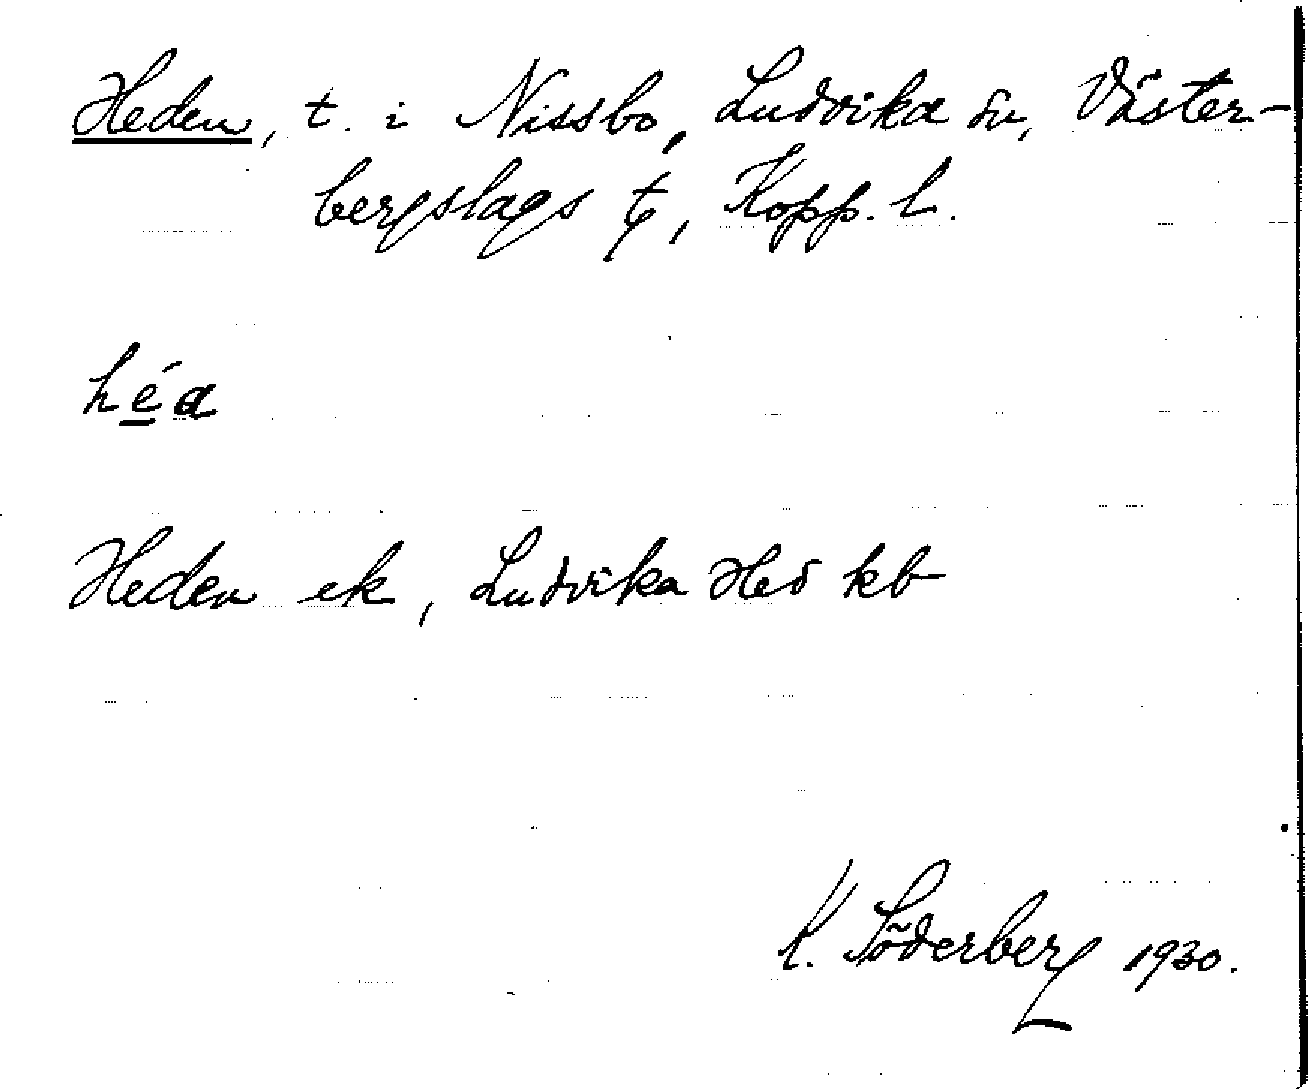 Heden, t. i Nissbo, Ludvika sn, Väster-
bergslags t, Kopp. l.
héa
Heden ek, Ludvika Hed kb
K. Söderberg 1930.